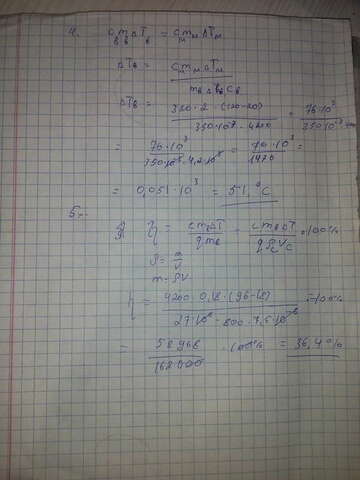 4. c_в m_в ΔT_в = c_м m_м ΔT_м
ΔT_в = c_м m_м ΔT_м / m_в c_в
ΔT_в = 380·2·(120-20) / 350·10⁻³·4200 = 76·10³ / 350·10⁻³
= 76·10³ / 350·10⁻³·4,2·10³ = 76·10³ / 1470 =
= 0,051·10³ = 51, °C
5.
η = cmΔT / qm = cmΔT / qρV ·100%
ρ = m/V
m = ρV
η = 4200·0,18·(96-18) / 27·10⁶·800·7,5·10⁻⁶ ·100%
= 58968 / 162000 ·100% = 36,4%